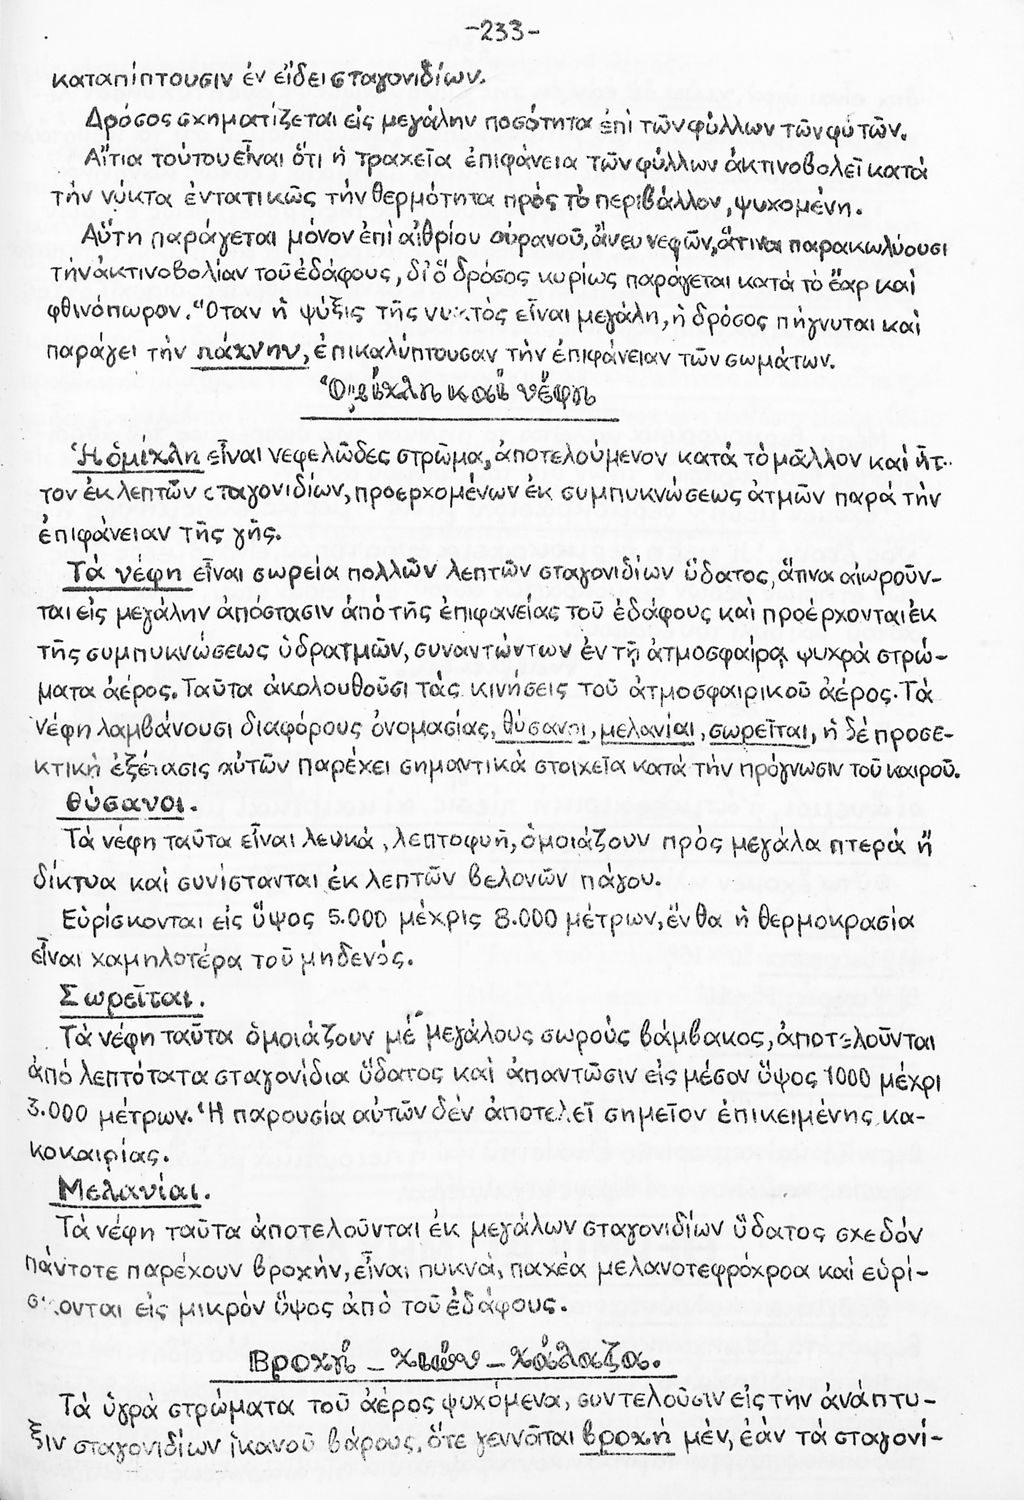 -233-
καταπίπτουσιν ἐν εἴδει σταγονιδίων.
Δρόσος σχηματίζεται εἰς μεγάλην ποσότητα ἐπί τῶν φύλλων τῶν φυτῶν.
Αἴτια τούτου εἶναι ὅτι ἡ τραχεῖα ἐπιφάνεια τῶν φύλλων ἀκτινοβολεῖ κατά
τήν νύκτα ἐντατικῶς τήν θερμότητα πρός τό περιβάλλον, ψυχομένη.
Αὕτη παράγεται μόνον ἐπί αἰθρίου οὐρανοῦ, ἄνευ νεφῶν, ἅτινα παρακωλύουσι
τήν ἀκτινοβολίαν τοῦ ἐδάφους, δι᾽ ὅ δρόσος κυρίως παράγεται κατά τό ἔαρ καί
φθινόπωρον. Ὅταν ἡ ψύξις τῆς νυκτός εἶναι μεγάλη, ἡ δρόσος πήγνυται καί
παράγει τήν πάχνην, ἐπικαλύπτουσαν τήν ἐπιφάνειαν τῶν σωμάτων.
Ὁμίχλη καί νέφη
Ἡ ὁμίχλη εἶναι νεφελῶδες στρῶμα, ἀποτελούμενον κατά τό μᾶλλον καί ἧτ-
τον ἐκ λεπτῶν σταγονιδίων, προερχομένων ἐκ συμπυκνώσεως ἀτμῶν παρά τήν
ἐπιφάνειαν τῆς γῆς.
Τά νέφη εἶναι σωρεία πολλῶν λεπτῶν σταγονιδίων ὕδατος, ἅτινα αἰωροῦν-
ται εἰς μεγάλην ἀπόστασιν ἀπό τῆς ἐπιφανείας τοῦ ἐδάφους καί προέρχονται ἐκ
τῆς συμπυκνώσεως ὑδρατμῶν, συναντώντων ἐν τῇ ἀτμοσφαίρᾳ ψυχρά στρώ-
ματα ἀέρος. Ταῦτα ἀκολουθοῦσι τάς κινήσεις τοῦ ἀτμοσφαιρικοῦ ἀέρος. Τά
νέφη λαμβάνουσι διαφόρους ὀνομασίας, θύσανοι, μελανίαι, σωρεῖται, ἡ δέ προσε-
κτική ἐξέτασις αὐτῶν παρέχει σημαντικά στοιχεῖα κατά τήν πρόγνωσιν τοῦ καιροῦ.
Θύσανοι.
Τά νέφη ταῦτα εἶναι λευκά, λεπτοφυῆ, ὁμοιάζουν πρός μεγάλα πτερά ἤ
δίκτυα καί συνίστανται ἐκ λεπτῶν βελονῶν πάγου.
Εὑρίσκονται εἰς ὕψος 5.000 μέχρις 8.000 μέτρων, ἔνθα ἡ θερμοκρασία
εἶναι χαμηλοτέρα τοῦ μηδενός.
Σωρεῖται.
Τά νέφη ταῦτα ὁμοιάζουν μέ μεγάλους σωρούς βάμβακος, ἀποτελοῦνται
ἀπό λεπτότατα σταγονίδια ὕδατος καί ἀπαντῶσιν εἰς μέσον ὕψος 1000 μέχρι
3.000 μέτρων. Ἡ παρουσία αὐτῶν δέν ἀποτελεῖ σημεῖον ἐπικειμένης κα-
κοκαιρίας.
Μελανίαι.
Τά νέφη ταῦτα ἀποτελοῦνται ἐκ μεγάλων σταγονιδίων ὕδατος σχεδόν
πάντοτε παρέχουν βροχήν, εἶναι πυκνά, παχέα μελανοτεφρόχροα καί εὑρί-
σκονται εἰς μικρόν ὕψος ἀπό τοῦ ἐδάφους.
Βροχή - Χιών - Χάλαζα.
Τά ὑγρά στρώματα τοῦ ἀέρος ψυχόμενα, συντελοῦσιν εἰς τήν ἀνάπτυ-
ξιν σταγονιδίων ἱκανοῦ βάρους, ὅτε γεννᾶται βροχή μέν, ἐάν τά σταγονί-